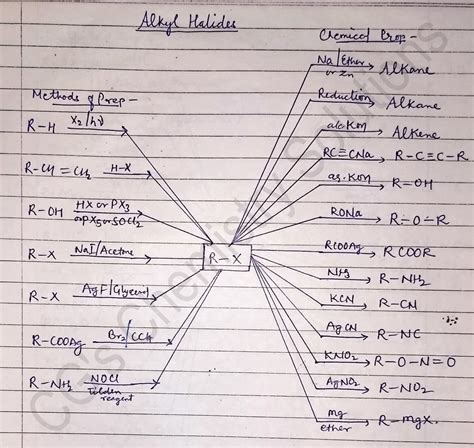 Alkyl Halides
Chemical Prop -
Methods of Prep -
R-H X₂/hν
R-CH=CH₂ H-X
R-OH HX or PX₃
or PX₅ or SOCl₂
R-X NaI/Acetone
R-X AgF/Glycerol
R-COOAg Br₂/CCl₄
R-NH₂ NOCl
Tilden
reagent
R-X
Na/Ether
or Zn Alkane
Reduction Alkane
alc. KOH Alkene
RC≡CNa R-C≡C-R
aq. KOH R=OH
RONa R=O-R
RCOOAg RCOOR
NH₃ R-NH₂
KCN R-CN
AgCN R-NC
KNO₂ R-O-N=O
AgNO₂ R-NO₂
Mg
ether R-MgX.
CG's Chemistry Solutions